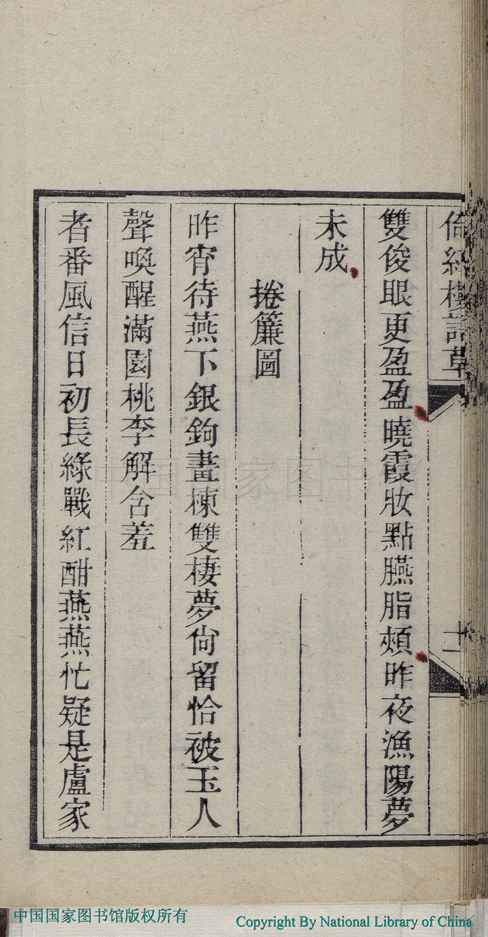 倚紅樓詩草
十一
雙俊眼更盈盈曉霞妝點臙脂頰昨夜漁陽夢
未成
捲簾圖
昨宵待燕下銀鉤畫棟雙棲夢尙留恰被玉人
聲喚醒滿園桃李解含羞
者番風信日初長綠戰紅酣燕燕忙疑是盧家
中国国家图书馆
中国国家图书馆版权所有
Copyright By National Library of China